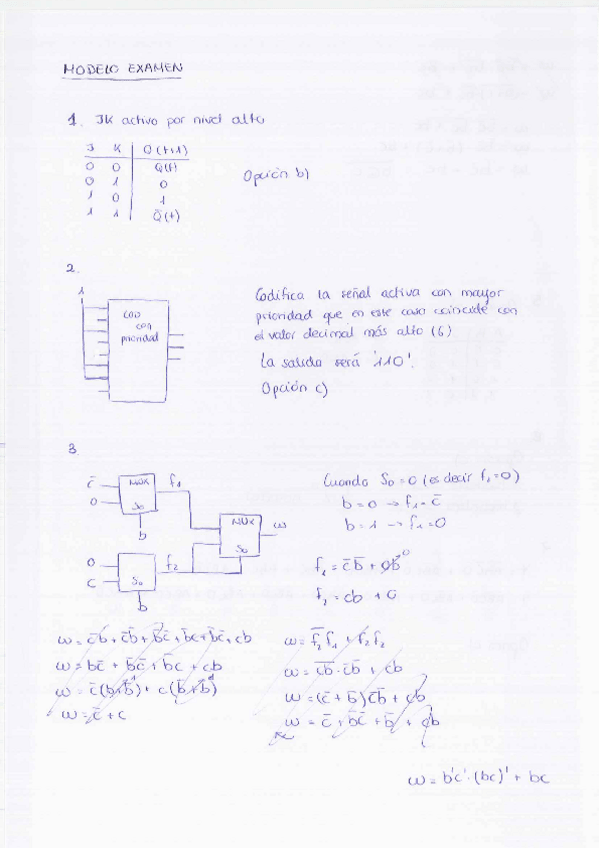 MODELO EXAMEN
1. JK activo por nivel alto
J K Q(t+1)
0 0 Q(t)
0 1 0
1 0 1
1 1 Q̄(t)
Opción b)
2.
1
COD
con
prioridad
Codifica la señal activa con mayor
prioridad que en este caso coincide con
el valor decimal más alto (6)
La salida será '110'.
Opción c)
3
c̄
0
MUX
S₀
b
f₁
0
C
S₀
b
f₂
MUX
S₀
ω
Cuando S₀=0 (es decir f₂=0)
b=0 → f₁=c̄
b=1 → f₁=0
f₁ = c̄b̄ + 0b̄ 0
f₂ = cb + 0
ω = bc̄ + b̄c̄ + b̄c + cb
ω = c̄(b+b̄) + c(b̄+b)
ω = c̄ + c
ω = f̄₂f₁ + f₂f₂
ω = c̅b̅·c̄b̄ + cb
ω = (c̄+b̄)c̄b̄ + cb
ω = c̄ + b̄c̄ + b̄ + cb
ω = b'c'·(bc)' + bc